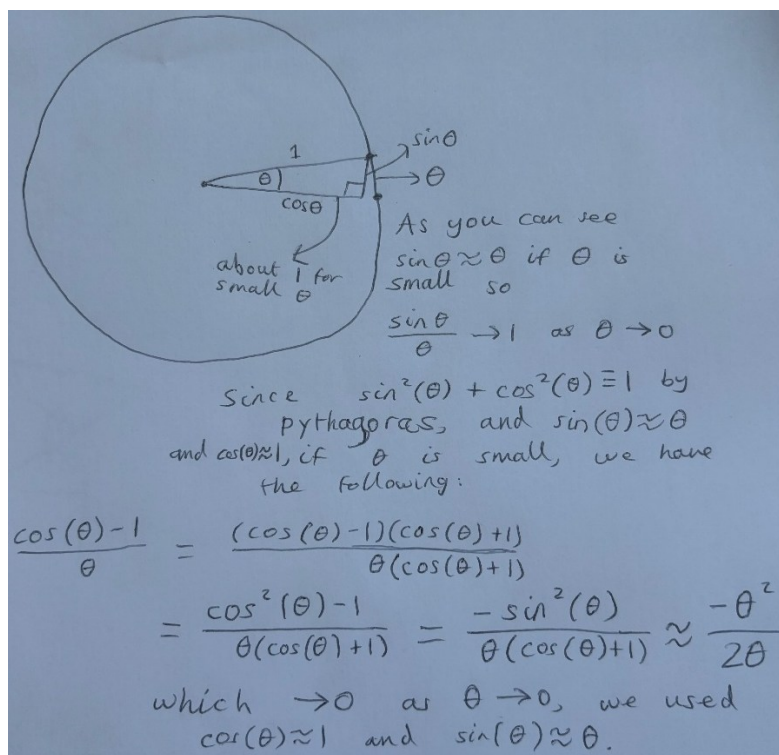 1
sinθ
θ
θ
cosθ
about 1 for
small θ
As you can see
sinθ ≈ θ if θ is
small so
sinθ/θ → 1 as θ → 0
Since sin²(θ) + cos²(θ) ≡ 1 by
pythagoras, and sin(θ) ≈ θ
and cos(θ) ≈ 1, if θ is small, we have
the following:
(cos(θ) - 1)/θ = (cos(θ) - 1)(cos(θ) + 1)/θ(cos(θ) + 1)
= (cos²(θ) - 1)/θ(cos(θ) + 1) = -sin²(θ)/θ(cos(θ) + 1) ≈ -θ²/2θ
which → 0 as θ → 0, we used
cos(θ) ≈ 1 and sin(θ) ≈ θ.